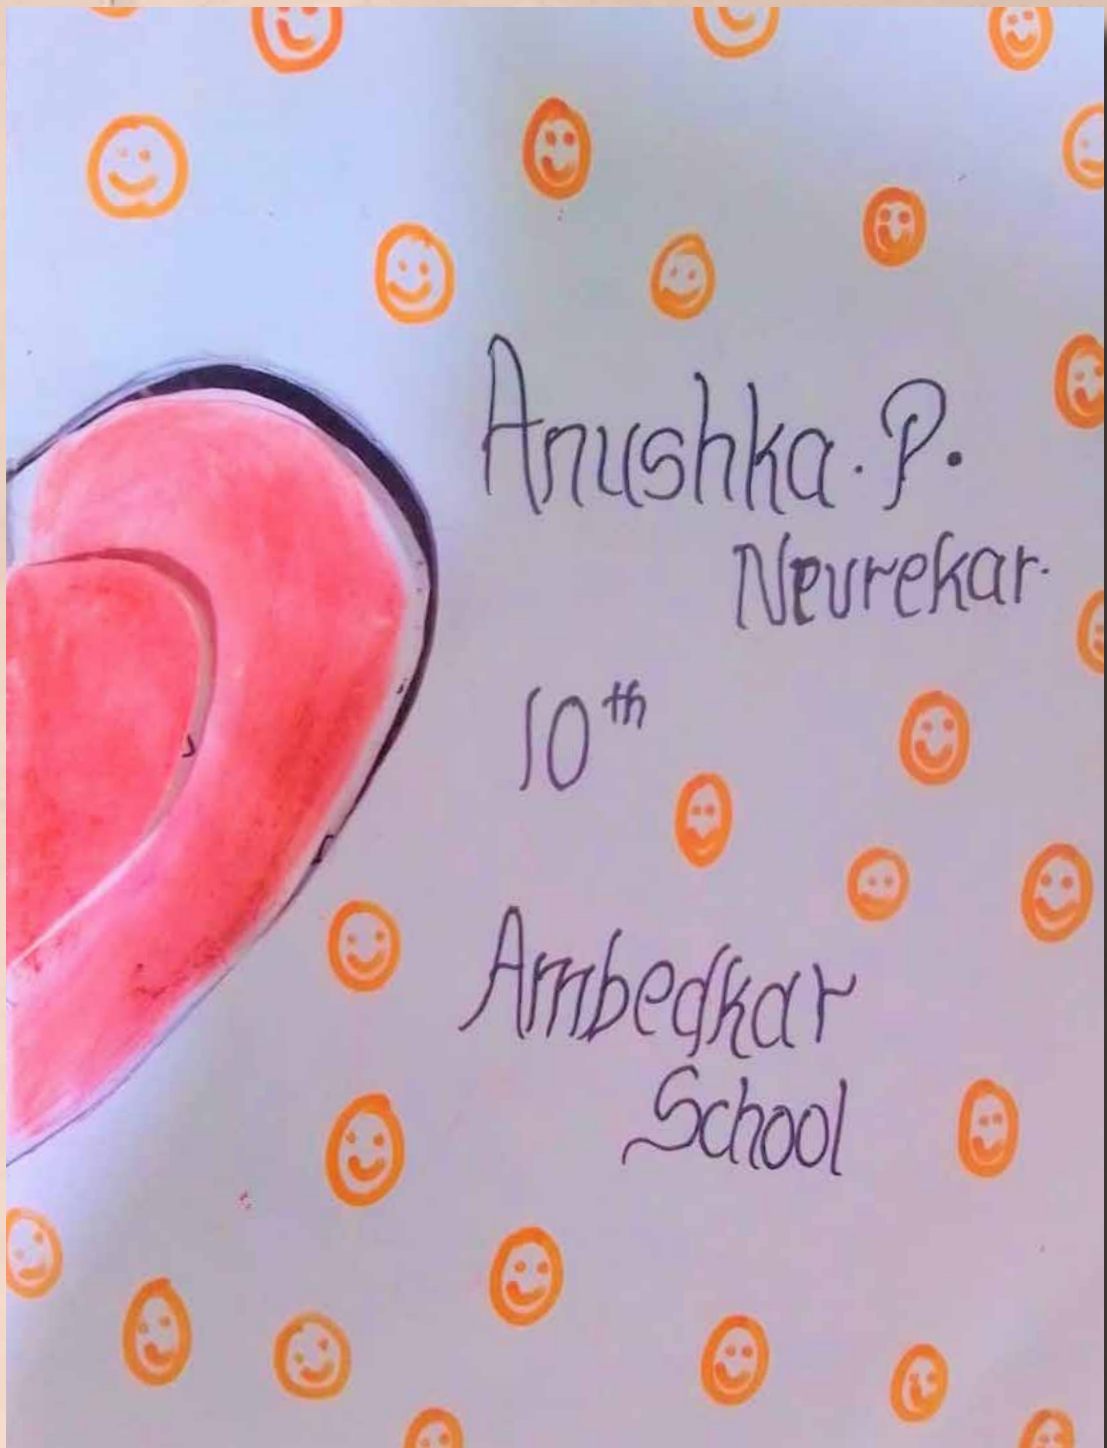 Anushka. P.
Nevrekar.
10th
Ambedkar
School